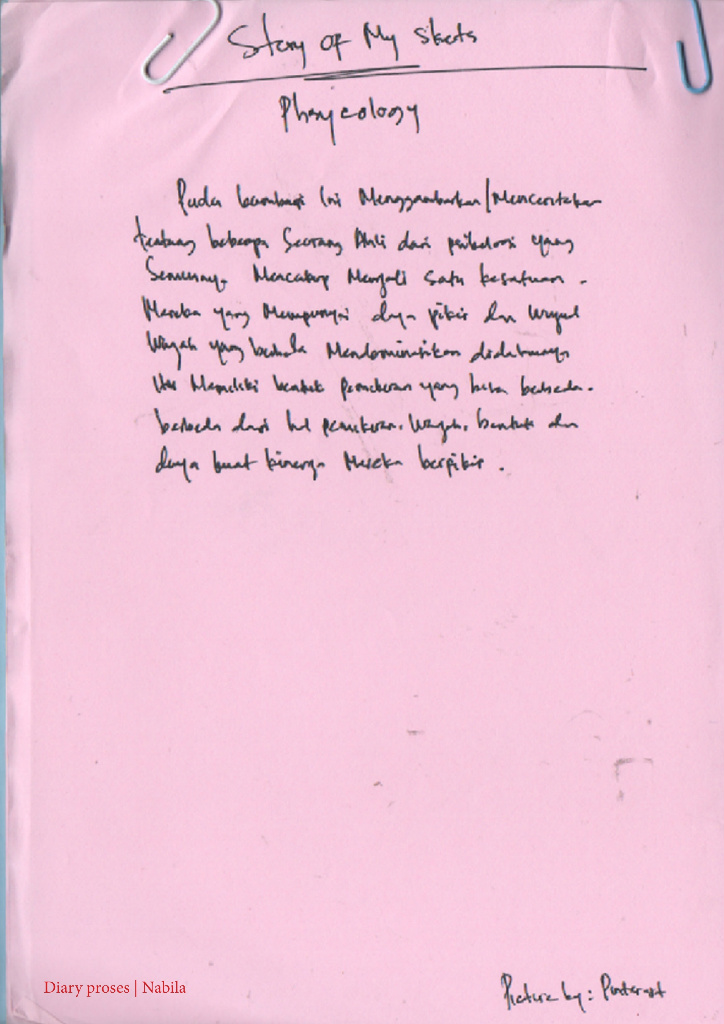 Story of My Skets
Phsycology
Pada ini Menggambarkan/Menceritakan
tentang beberapa Seorang Ahli dari psikologi yang
Semuanya Mencakup Menjadi satu kesatuan.
Mereka yang Mempunyai daya pikir dan Wujud
Wajah yang Mendominasikan didalamnya
Memiliki bentuk pemikiran yang berbeda-
berbeda dari pemikiran, Wajah, bentuk dan
daya buat kinerja Mereka berpikir.
Diary proses | Nabila
Picture by: Pinterest